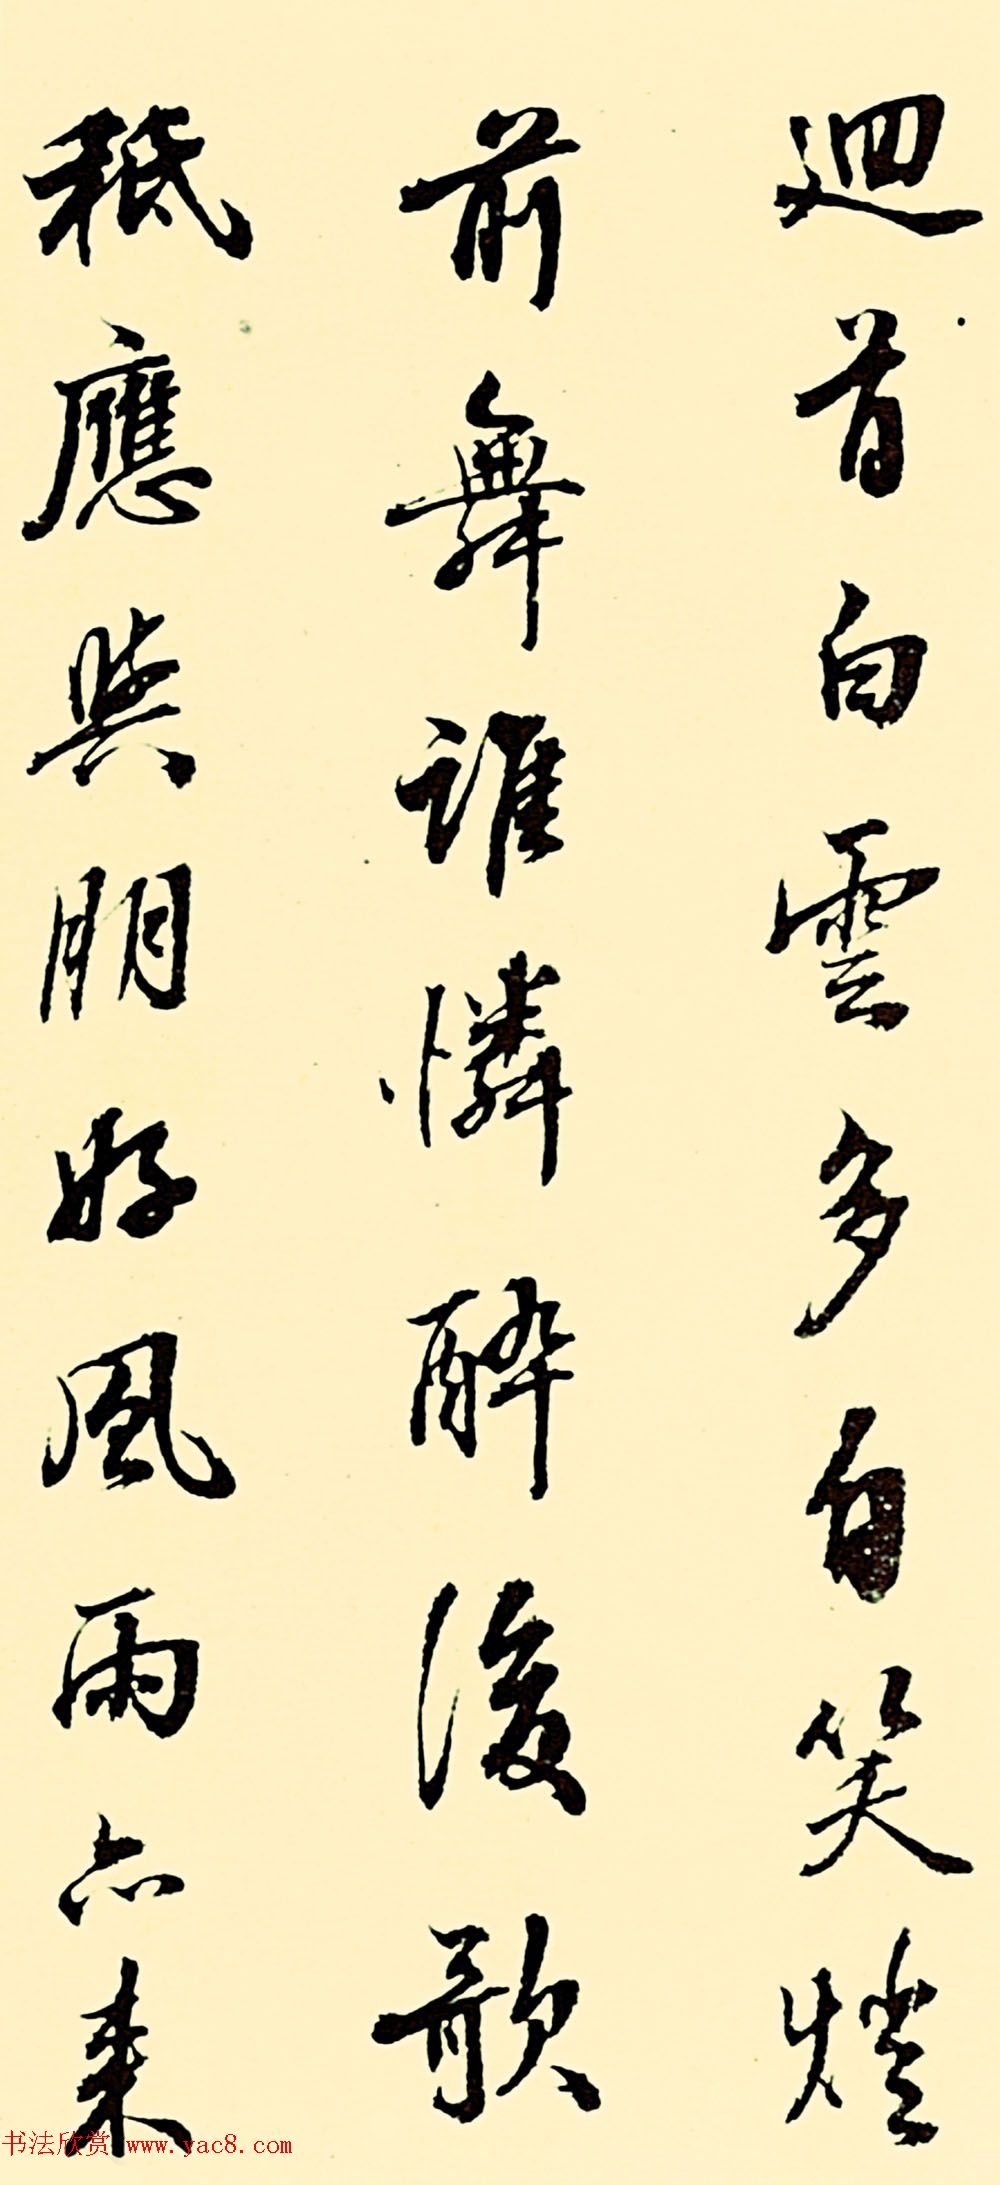 迴首白雲多自笑燈
前舞誰憐醉後歌
秖應與朋好風雨亦来
书法欣赏 www.yac8.com